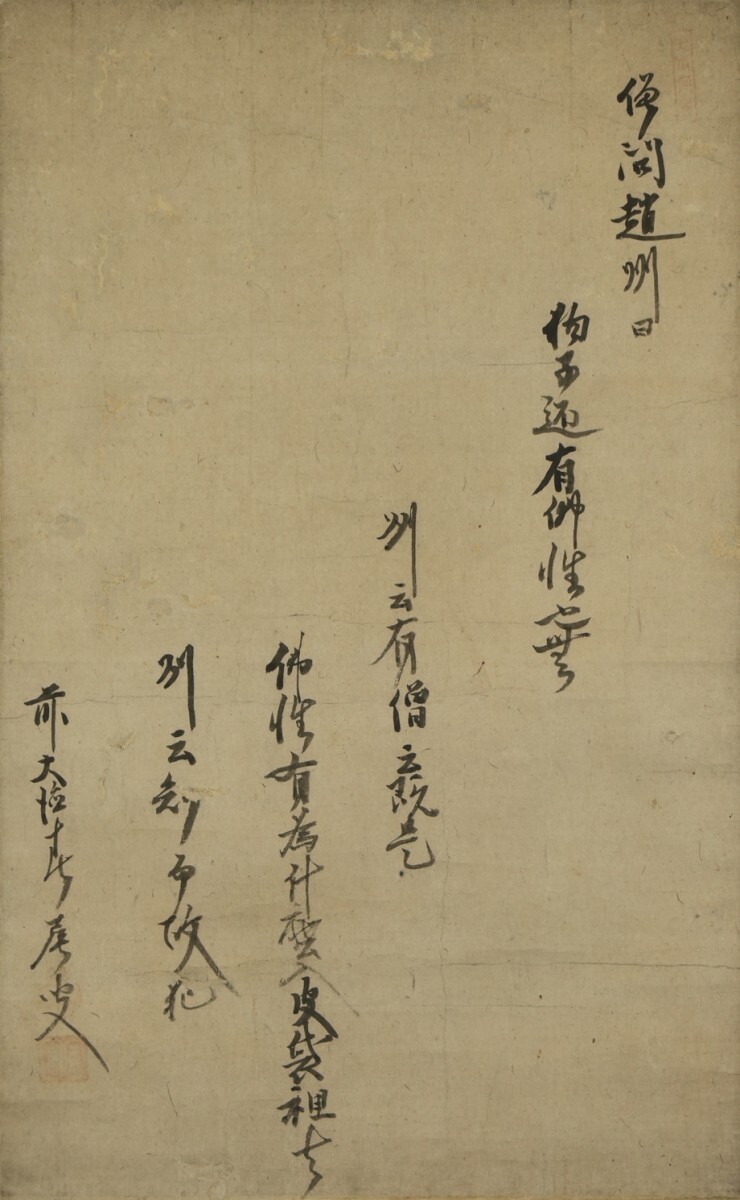 僧問趙州曰
狗子還有佛性也無
州云有僧云既是
佛性有為什麼入皮袋裡去
州云知而故犯
前大德春屋叟